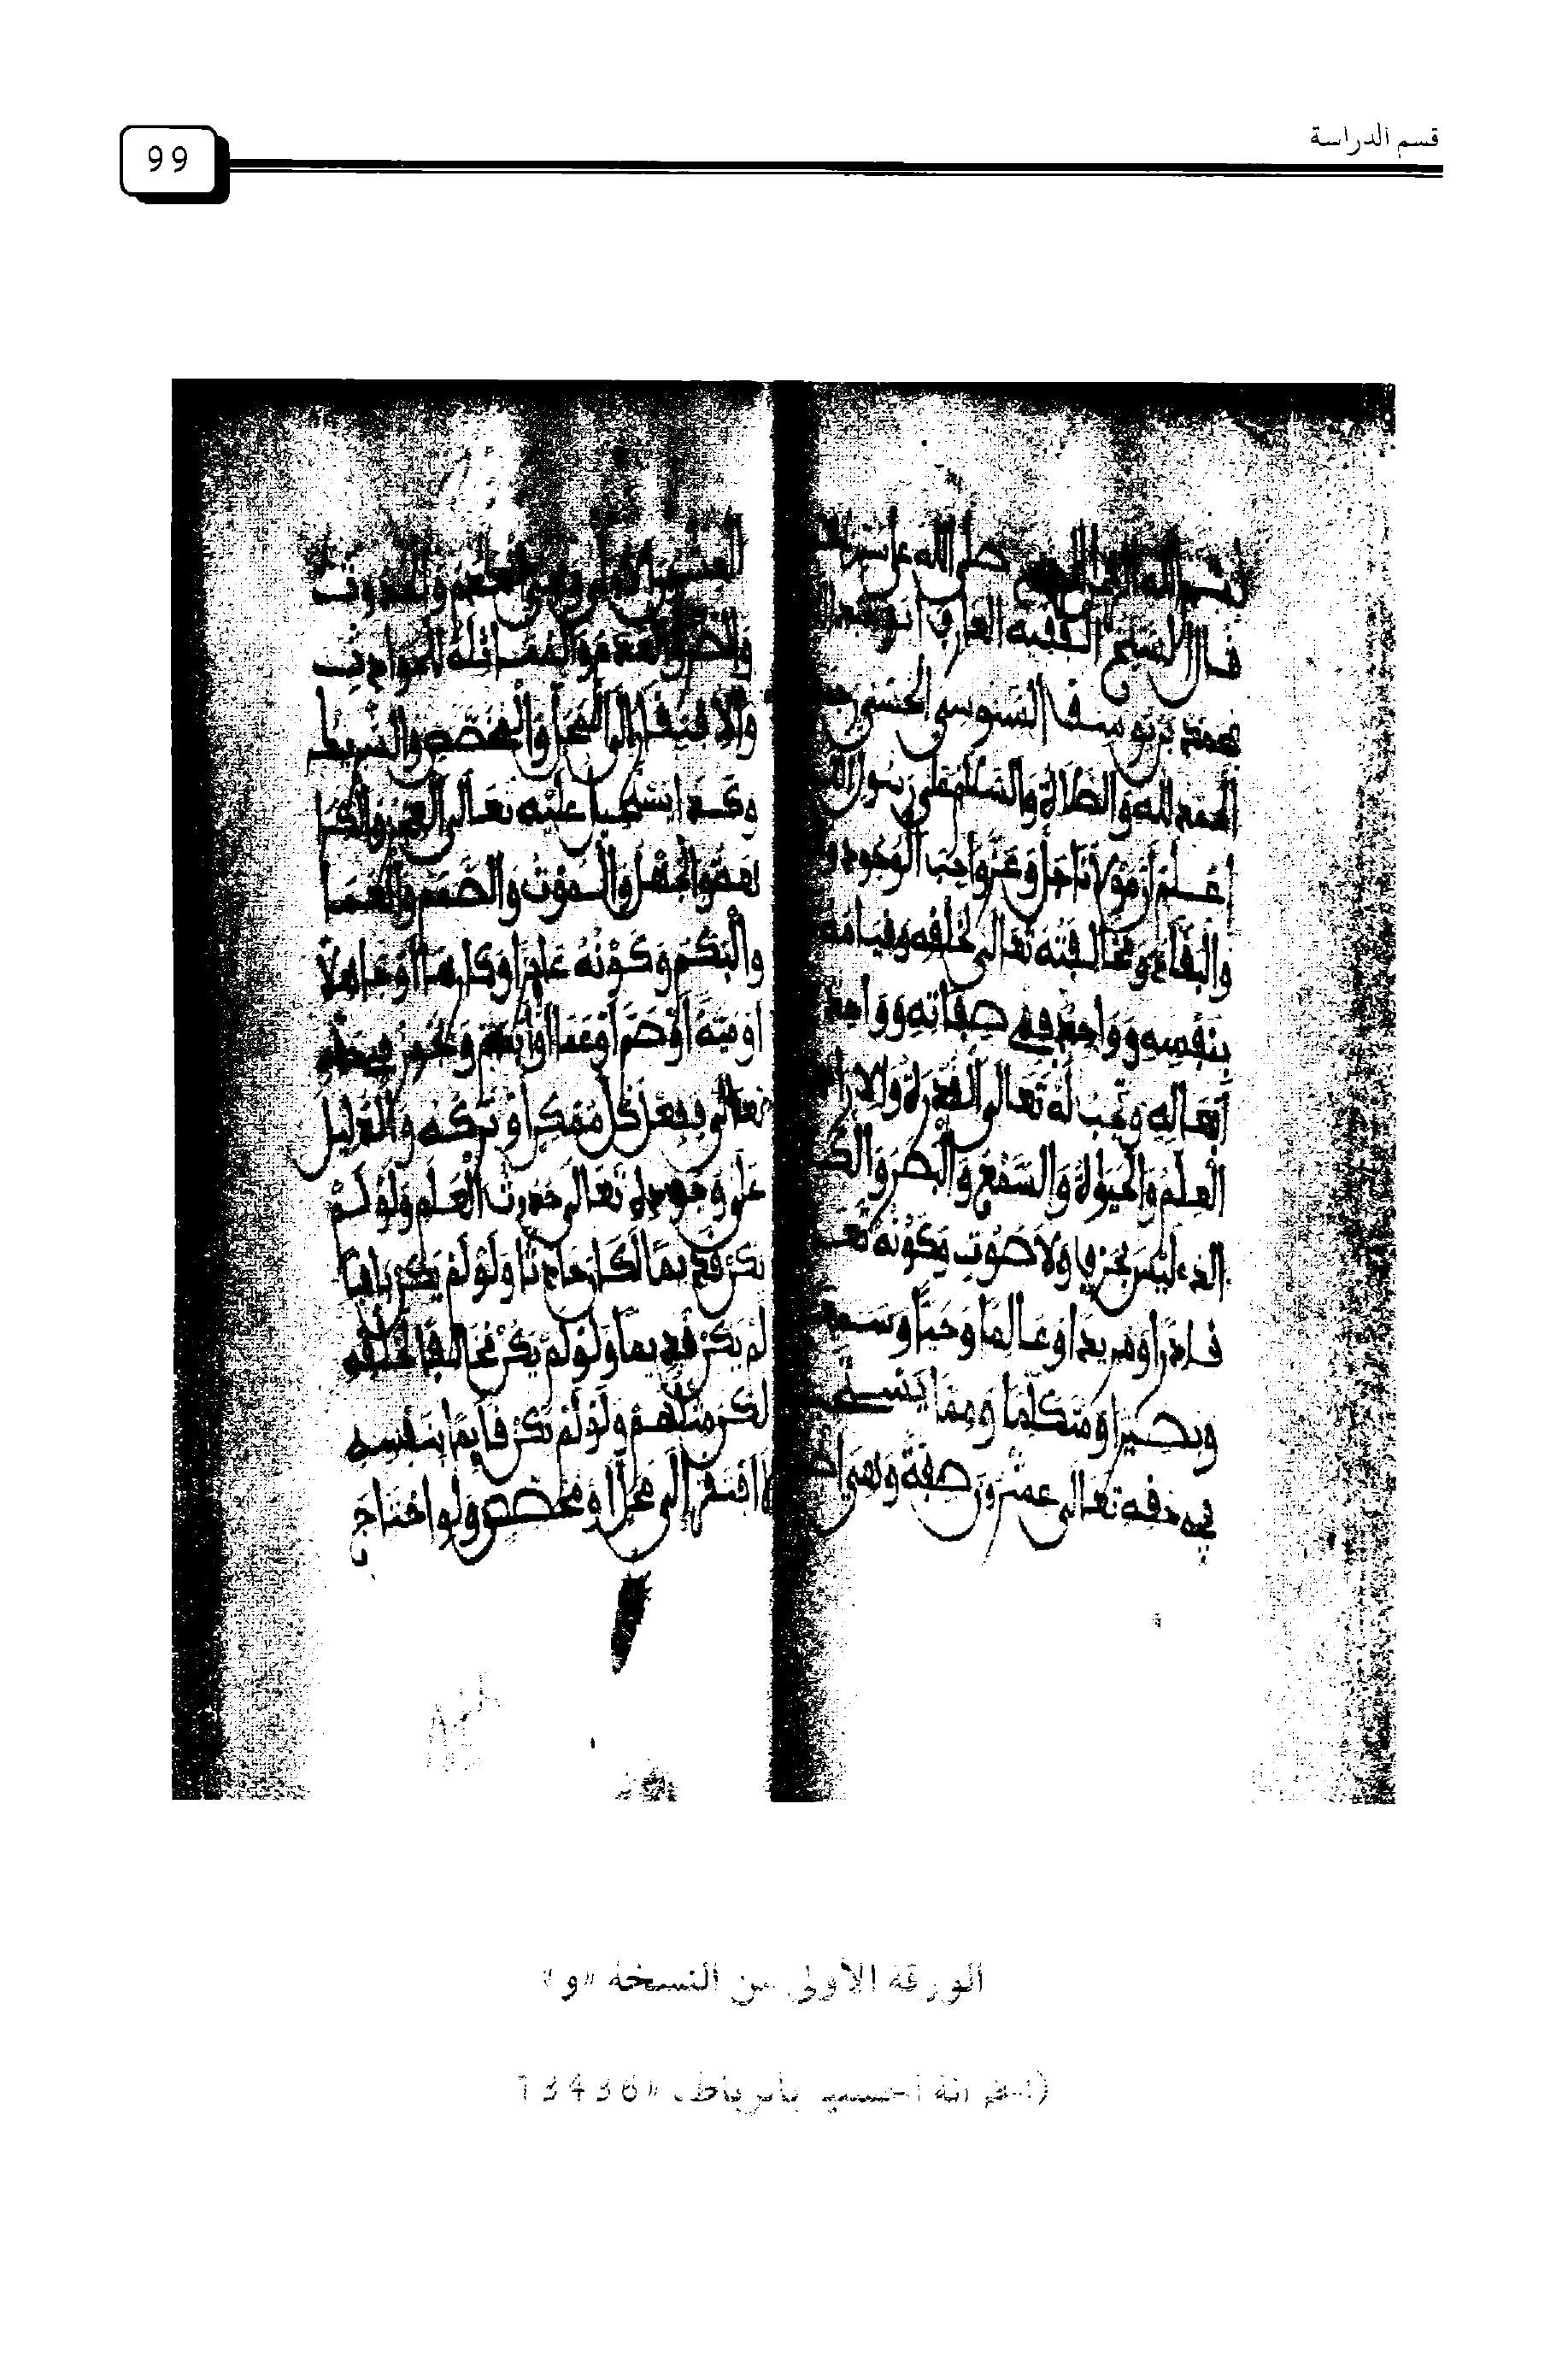 قسم الدراسة
99
بسم الله الرحمن الرحيم صلى الله على سيدنا
قال الشيخ الفقيه العارف أبو عبد الله
محمد بن يوسف السنوسي الحسني
الحمد لله والصلاة والسلام على رسول الله
اعلم أن مولانا جل وعز واجب الوجود و
والبقاء ومخالفته تعالى لخلقه وقيامه
بنفسه وواحد في صفاته وواحد
أفعاله وتجب له تعالى القدرة والإرا
العلم والحيوة والسمع والبصر والكـ
الذي ليس بحرف ولا صوت وكونه تعـ
قادرا ومريدا وعالما وحيا وسميـ
وبصيرا ومتكلما ومما يستحيل
في حقه تعالى عشرون صفة وهي
العدم والحدوث
وطرو العدم والمماثلة للحوادث
والافتقار إلى المحل والمخصص والشريط
وكذا يستحيل عليه تعالى العجز والكرا
والجهل والموت والصمم والعما
والبكم وكونه عاجزا وكارها أو جاهلا
أو ميتا أو أصم أو أعما أو أبكم ويجوز في حقه
تعالى فعل كل ممكن أو تركه والدليل
على وجوده تعالى حدوث العلم ولو لم
يكن قديما لكان حادثا ولو لم يكن باقيا
لم يكن قديما ولو لم يكن مخالفا لخلقه
لكن مثلهم ولو لم يكن قايما بنفسه
لافتقر إلى محل أو مخصص ولو احتاج
الورقة الأولى من النسخة «و»
(الخزانة الحسنية بالرباط، «13436